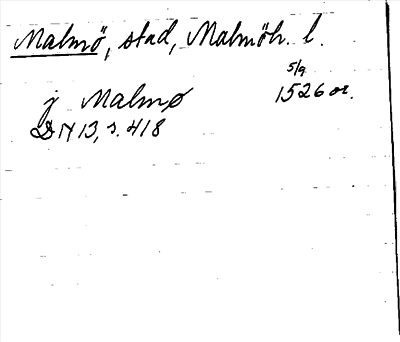 Malmö, stad, Malmöh. l.
5/9
j Malmø 1526 or.
DN 13, s. 418